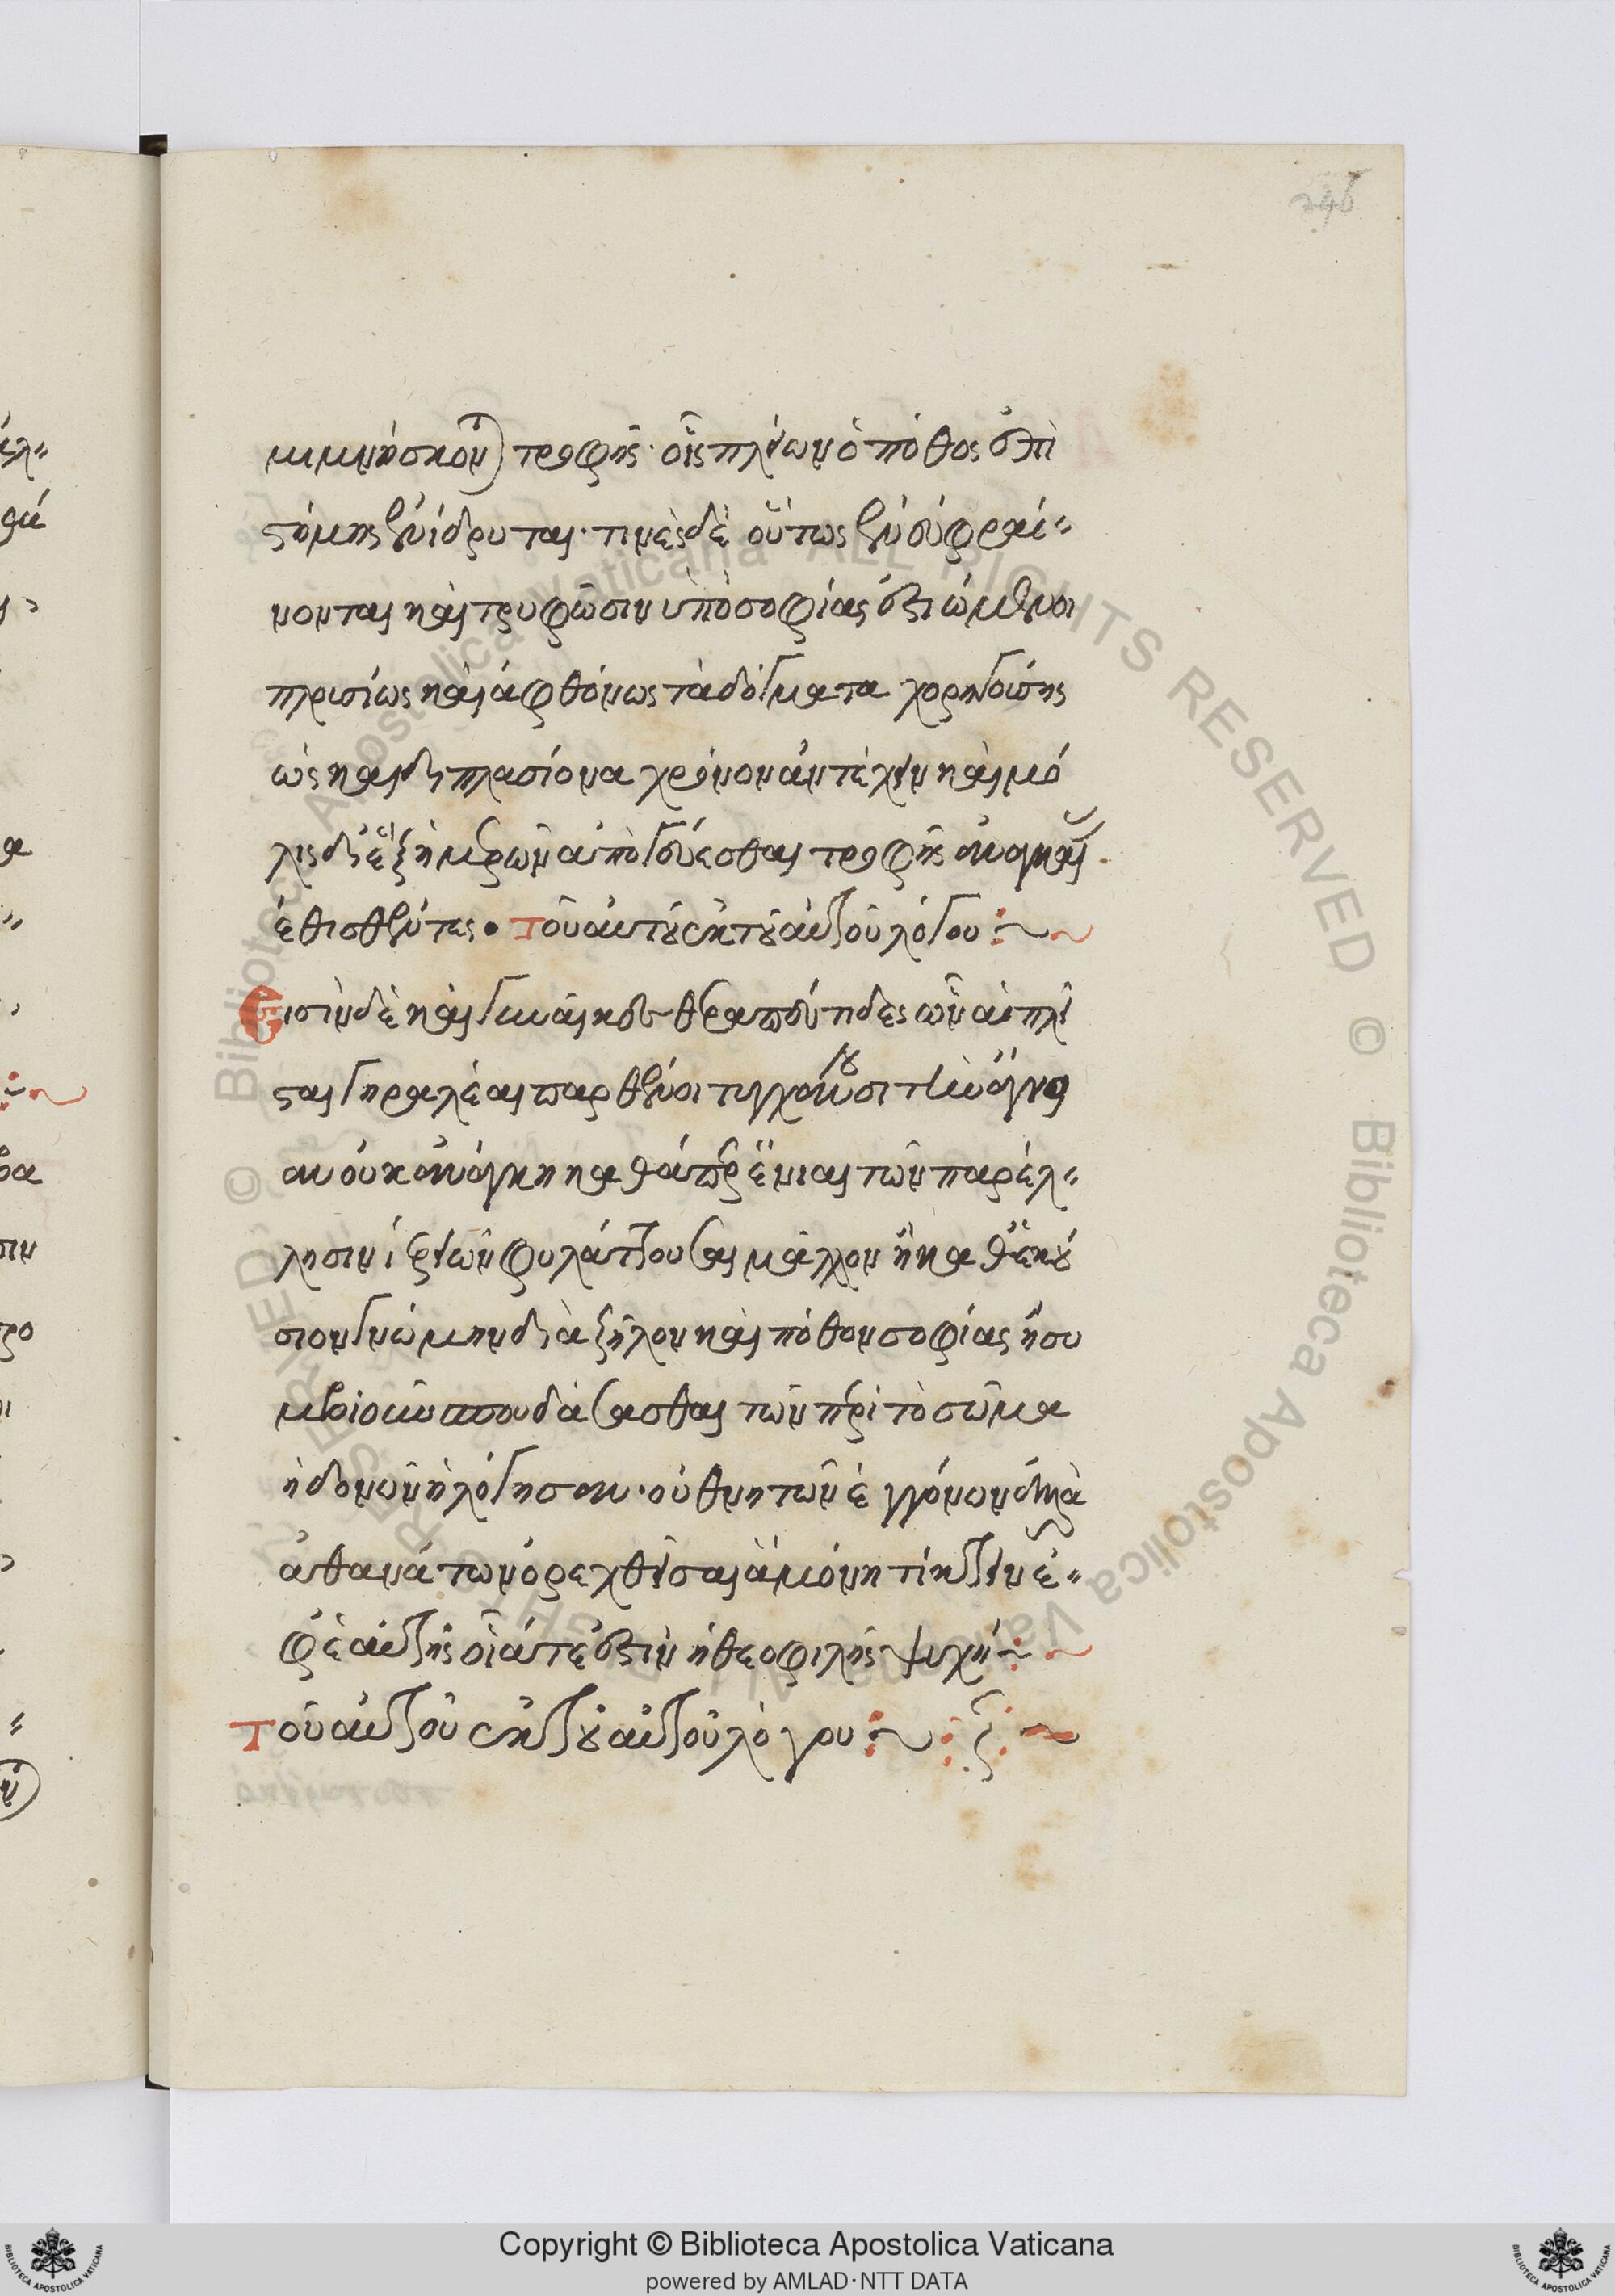 246
μιμνήσκονται τροφῆς· οἷς πλείων ὁ πόθος ἐπι
στήμης ἐνίδρυται· τινὲς δὲ οὕτως ἐνευφραί-
νονται καὶ τρυφῶσιν ὑπὸ σοφίας ἑστιώμενοι
πλουσίως καὶ ἀφθόνως τὰ δόγματα χορηγούσης
ὡς καὶ διπλασίονα χρόνον ἀντέχειν καὶ μό
λις δι' ἓξ ἡμερῶν ἀπογεύεσθαι τροφῆς ἀναγκαίας
ἐθισθέντες. τοῦ αὐτοῦ ἐκ τοῦ αὐτοῦ λόγου
Εἰσὶν δὲ καὶ γυναῖκες θεραπευτίδες ὧν αἱ πλεῖ
σται γηραλέαι παρθένοι τυγχάνουσι τὴν ἁγνεί
αν οὐκ ἀνάγκη καθάπερ ἔνιαι τῶν παρ' ἕλ-
λησιν ἱερειῶν φυλάττουσαι μᾶλλον ἢ καθ' ἑκού
σιον γνώμην διὰ ζῆλον καὶ πόθον σοφίας ᾗ συ
μβιοῦν σπουδάσασθαι τῶν περὶ τὸ σῶμα
ἡδονῶν ἠλόγησαν· οὐ θνητῶν ἐγγόνων ἀλλὰ
ἀθανάτων ὀρεχθεῖσαι ἃ μόνη τίκτειν ἐ-
φ' ἑαυτῆς οἵα τέ ἐστιν ἡ θεοφιλὴς ψυχή
Τοῦ αὐτοῦ ἐκ τοῦ αὐτοῦ λόγου
Copyright © Biblioteca Apostolica Vaticana
powered by AMLAD·NTT DATA